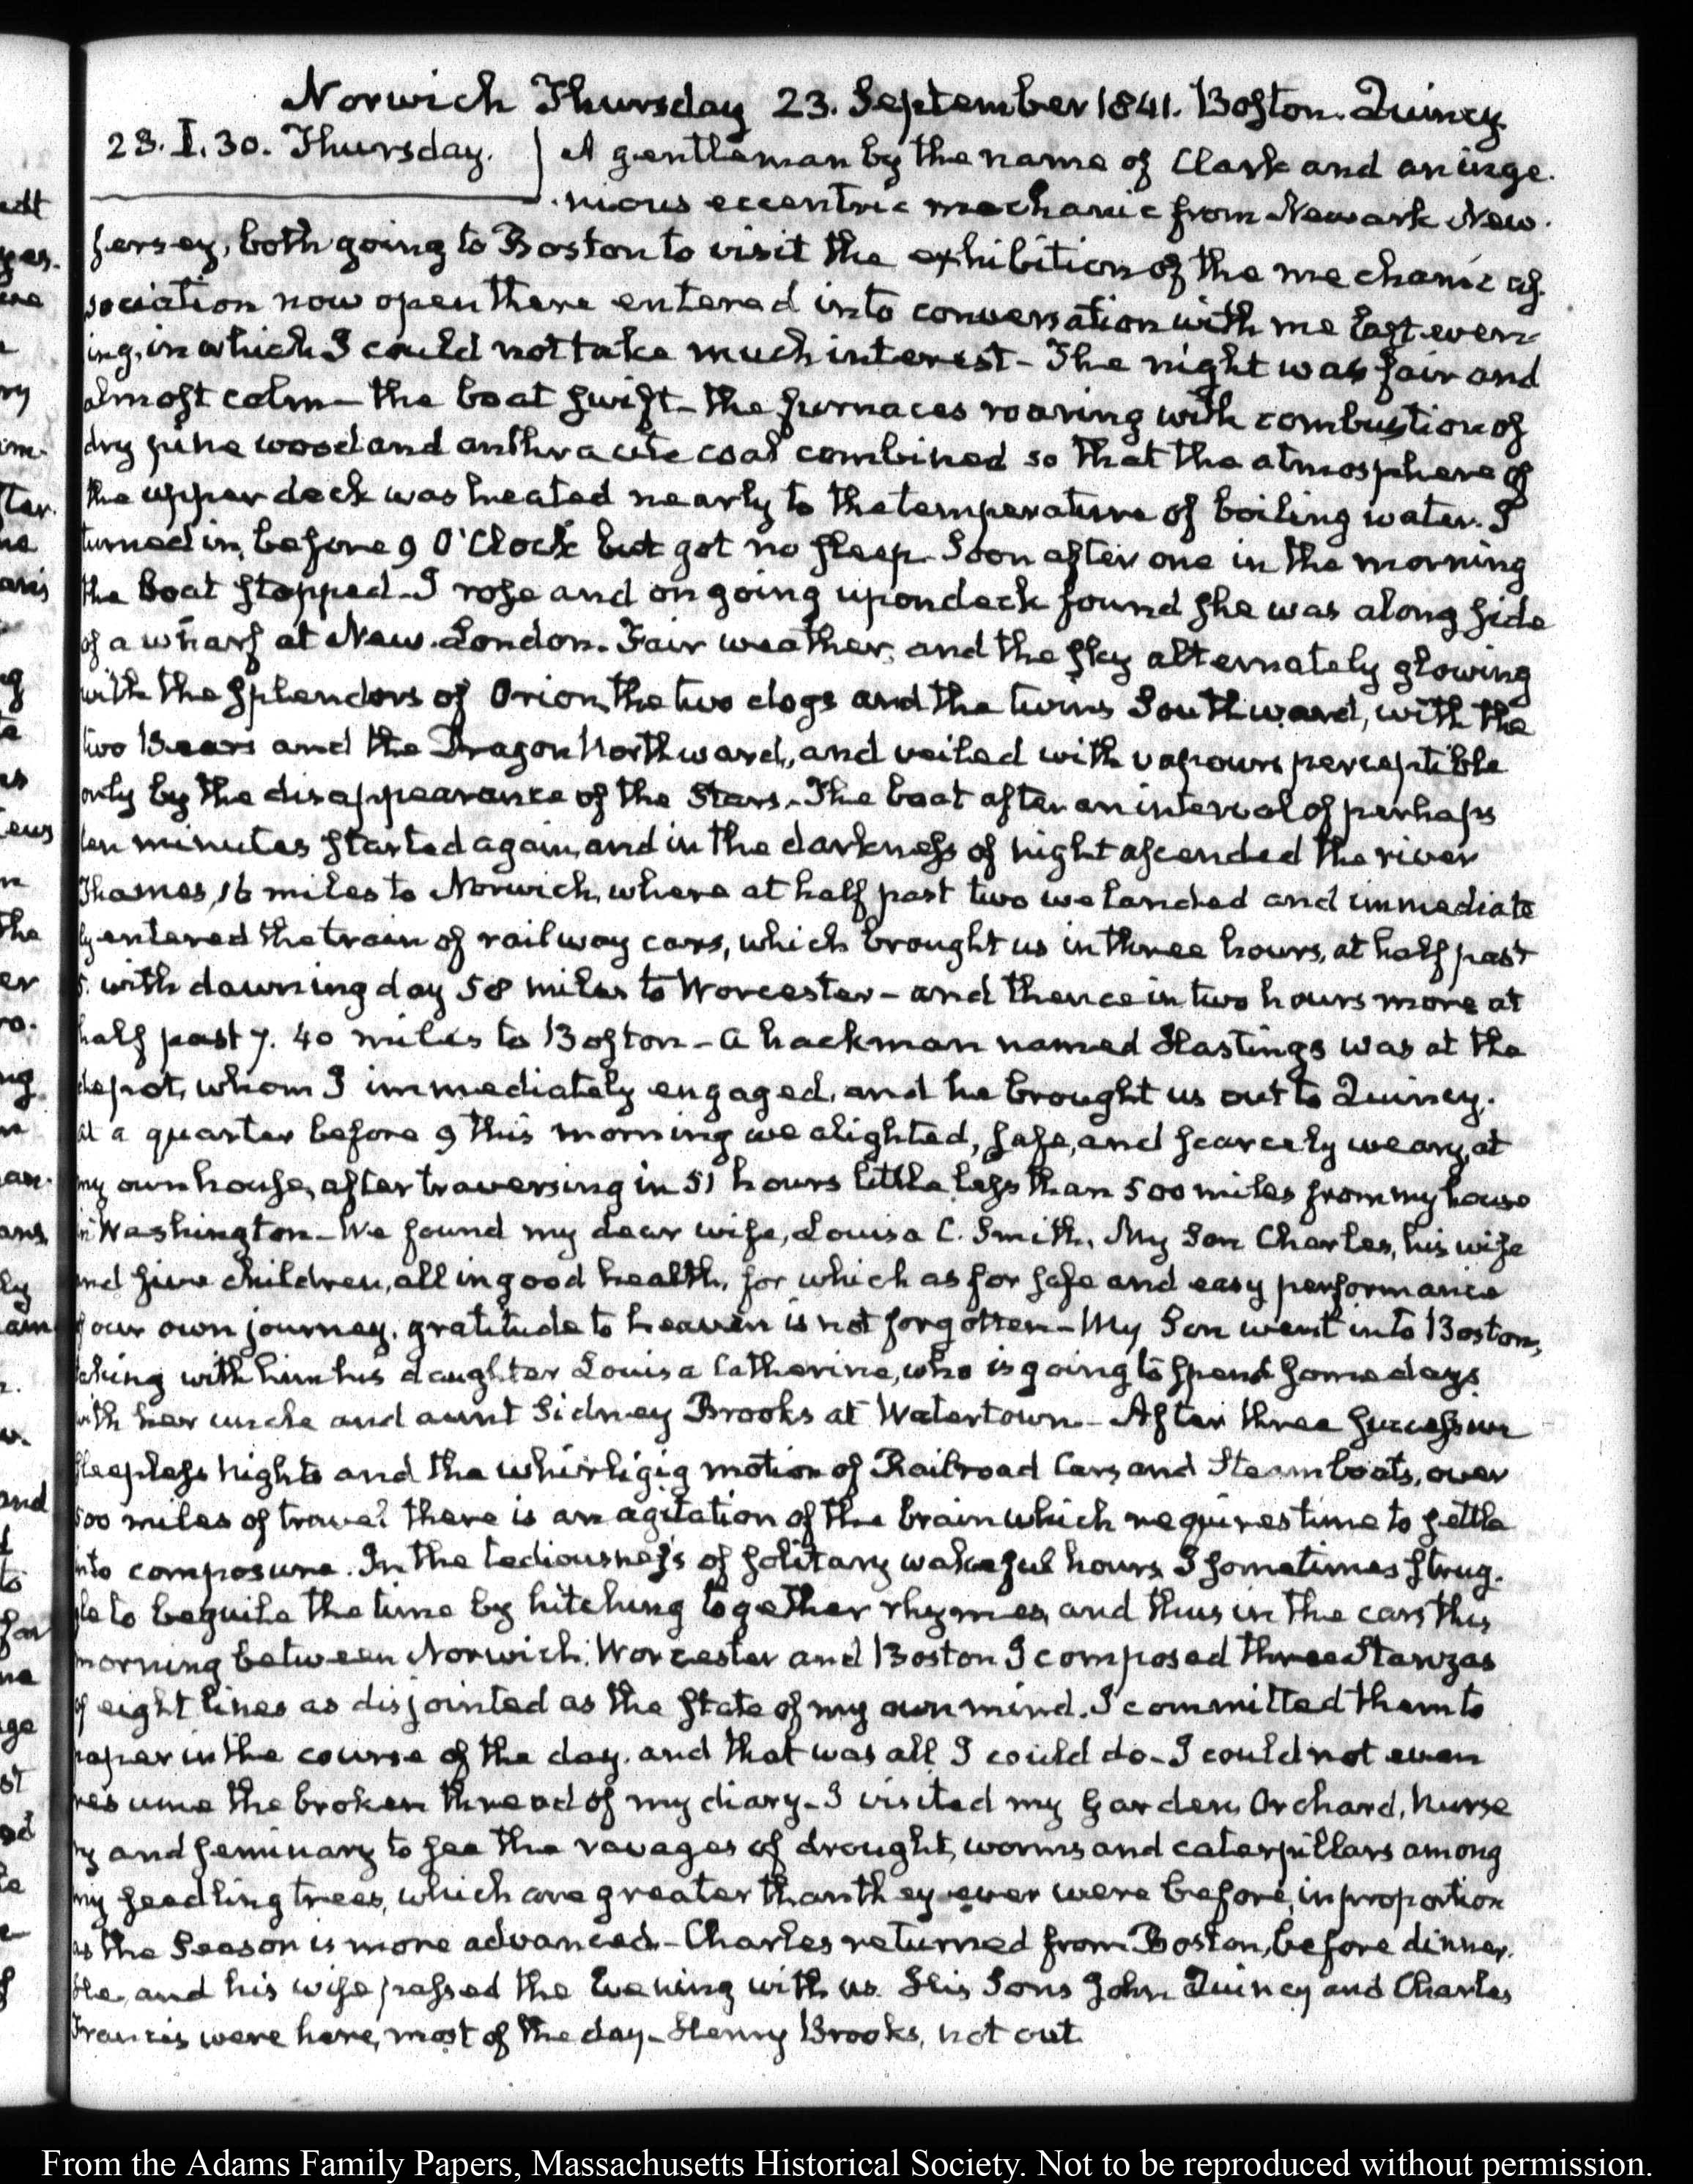 Norwich Thursday 23. September 1841. Boston. Quincy
23. I. 30. Thursday. } A gentleman by the name of Clark and an inge-
nious eccentric mechanic from Newark New-
Jersey, both going to Boston to visit the exhibition of the mechanic as-
sociation now open there entered into conversation with me last even-
ing, in which I could not take much interest - The night was fair and
almost calm - the boat swift - the furnaces roaring with combustion of
dry pine wood and anthracite coal combined so that the atmosphere of
the upper deck was heated nearly to the temperature of boiling water. I
turned in, before 9 O'Clock but got no sleep. Soon after one in the morning
the boat stopped - I rose and on going upon deck found she was along side
of a wharf at New-London. Fair weather, and the sky alternately glowing
with the splendors of Orion, the two dogs and the twins Southward, with the
two Bears and the Dragon Northward, and veiled with vapours perceptible
only by the disappearance of the Stars - The boat after an interval of perhaps
ten minutes started again, and in the darkness of night ascended the river
Thames, 16 miles to Norwich, where at half past two we landed and immediate
ly entered the train of railway cars, which brought us in three hours, at half past
5. with dawning day 58 miles to Worcester - and thence in two hours more at
half past 7. 40 miles to Boston - a hackman named Hastings was at the
depot, whom I immediately engaged, and he brought us out to Quincy.
at a quarter before 9 this morning we alighted, safe, and scarcely weary, at
my own house, after traversing in 51 hours little less than 500 miles from my house
in Washington - We found my dear wife, Louisa C. Smith, My Son Charles, his wife
and five children, all in good health, for which as for safe and easy performance
of our own journey, gratitude to heaven is not forgotten - My Son went into Boston,
taking with him his daughter Louisa Catherine, who is going to spend some days
with her uncle and aunt Sidney Brooks at Watertown - After three successive
sleepless nights and the whirligig motion of Railroad Cars, and Steamboats, over
500 miles of travel there is an agitation of the brain which requires time to settle
into composure. In the tediousness of solitary wakeful hours, I sometimes strug-
gle to beguile the time by hitching together rhymes, and thus in the cars this
morning between Norwich, Worcester and Boston I composed three Stanzas
of eight lines as disjointed as the state of my own mind. I committed them to
paper in the course of the day, and that was all I could do - I could not even
resume the broken thread of my diary - I visited my Garden, Orchard, Nurse
ry and seminary to see the ravages of drought, worms and caterpillars among
my seedling trees, which are greater than they ever were before, in proportion
as the Season is more advanced. - Charles returned from Boston, before dinner.
He, and his wife passed the Evening with us. His Sons John Quincy and Charles
Francis were here, most of the day - Henry Brooks, not out
From the Adams Family Papers, Massachusetts Historical Society. Not to be reproduced without permission.